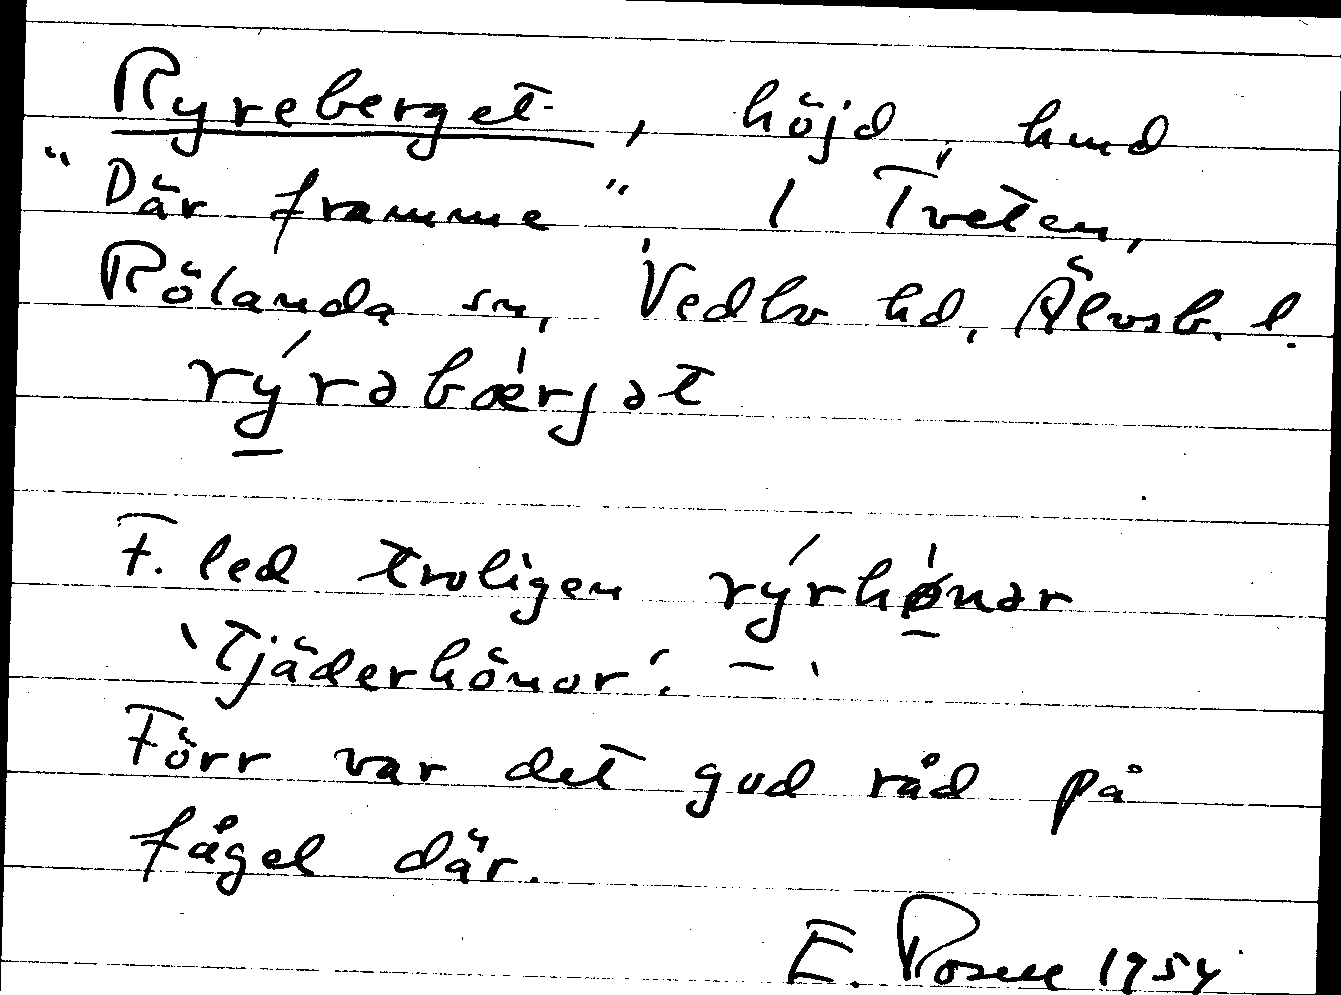 Ryreberget, höjd, hmd
"Där framme" / Tveten,
Rölanda sn, Vedbo hd, Älvsb. l.
rýrəbæ̀rjət
F. led troligen rýrhø̀nər
'Tjäderhönor'.
Förr var det god råd på
fågel där.
E. 1954